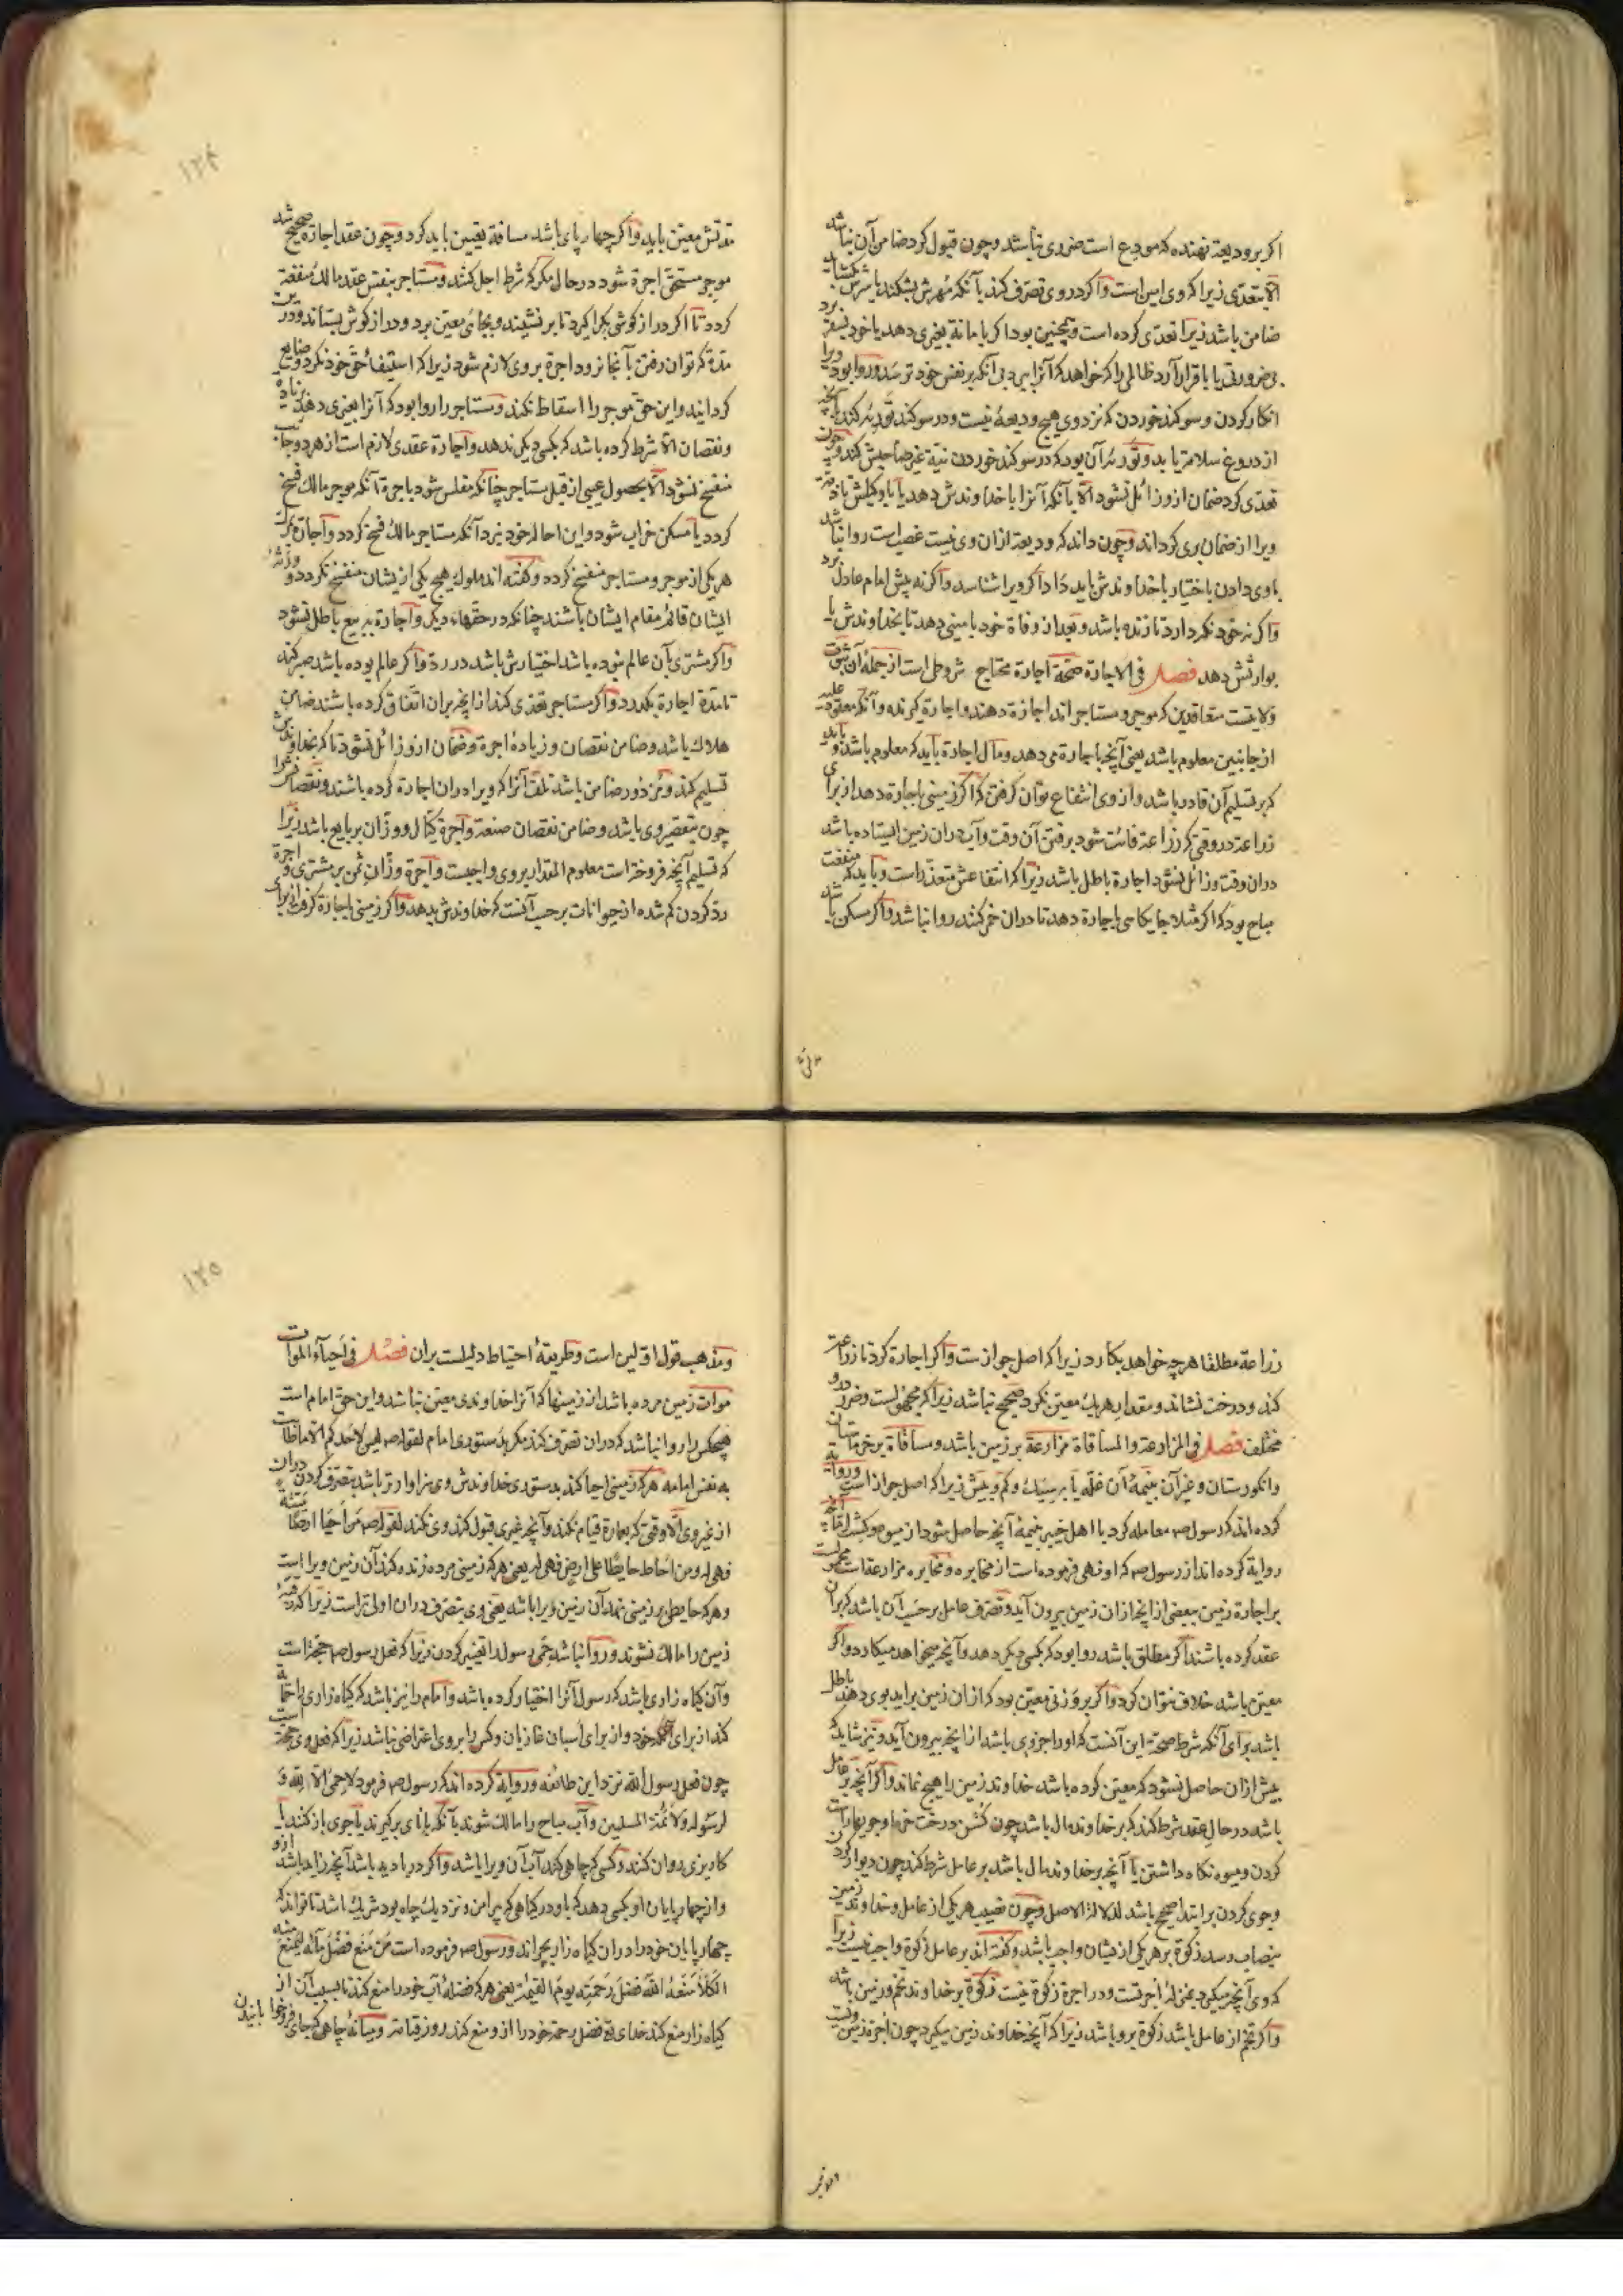 اکر بر ودیعة نهنده که مودع است ضرری نباشد وچون قبول کرد ضامن آن نباشد
الّا بتعدّی زیرا که وی امین است واکر دروی تصرّف کند یا آنکه مُهرش بشکند یا سرش بکشاید
ضامن باشد زیرا تعدّی کرده است وهمچنین بود اکر بامانة بغیری دهد یا خود بسفر برد
بی ضرورتی یا باقرار آرد ظالمی را که خواهد که آنرا ببرد بی آنکه بر نفس خود ترسد وروا بود ویرا
انکار کردن وسوکند خوردن که نزد وی هیچ ودیعة نیست ودر سوکند توریه کند آنچه
از دروغ سلامة یابد وتوریه آن بود که در سوکند خوردن نیّة غیر صاحبش کند وچون
تعدّی کرد ضمان ازو زائل نشود الّا بآنکه آنرا با خداوندش دهد یا با وکیلش یا ذمّة
ویرا از ضمان بری کرداند وچون داند که ودیعة ازان وی نیست غصب است روا نباشد
باوی دادن باختیار با خداوندش باید داد اکر ویرا شناسد واکر نه پیش امام عادل برد
واکر نه خود نکه دارد تا زنده باشد وبعد از وفاة خود بامینی دهد تا بخداوندش یا
بوارثش دهد فصل فی الاجارة صحّة اجارة محتاج شروط است از جملۀ آن ثبوت
ولایتست متعاقدین که موجر ومستاجر اند اجازة دهنده واجارة کیرنده وآنکه معقود علیه
از جانبین معلوم باشد یعنی آنچه باجارة می دهد ومال اجارة باید که معلوم باشد وباید
که بر تسلیم آن قادر باشد واز وی انتفاع توان کرفت که اکر زمینی باجارة دهد از برای
زراعة در وقتی که زراعة فائت شود برفتن آن وقت وآب دران زمین ایستاده باشد
دران وقت وزائل نشود اجارة باطل باشد زیرا که انتفاعش متعذّر است وباید که منفعت
مباح بود که اکر مثلا جایکاهی باجارة دهد تا دران خمر کنند روا نباشد واکر مسکن باشد
مدّتش معیّن باید واکر چهارپای باشد مسافة تعیین باید کرد وچون عقد اجارة صحیح شد
موجر مستحقّ اجرة شود در حال مکر که شرط اجل کنند ومستاجر بنفس عقد مالک منفعة
کردد تا اکر دراز کوشی بکرا کیرد تا بر نشیند وبجائی معیّن برد ودراز کوش بستاند ودرین
مدّة که توان رفتن بآنجا نرود اجرة بروی لازم شود زیرا که استیفاء حقّ خود نکرد وضایع
کردانید واین حقّ موجر را اسقاط نکند ومستاجر را روا بود که آنرا بغیری دهد بزیادة
ونقصان الّا شرط کرده باشد که بکسی دیکر ندهد واجارة عقدی لازم است از هر دو جانب
منفسخ نشود الّا بحصول عیبی از قبل مستاجر چنانکه مفلس شود باجرة آنکه موجر مالک فسخ
کردد یا مسکن خراب شود واین احاله خود نیزد آنکه مستاجر مالک فسخ کردد واجارة بمرک
هر یکی از موجر ومستاجر منفسخ کردد وکفته اند بهلاک هیچ یکی ازیشان منفسخ نکردد وورثۀ
ایشان قائم مقام ایشان باشند چنانکه در حقّهاء دیکر واجارة به بیع باطل نشود
واکر مشتری بآن عالم نبوده باشد اختیارش باشد در ردّ واکر عالم بوده باشد صبر کند
تا مدّة اجارة بکذرد واکر مستاجر تعدّی کند از انچه بران اتّفاق کرده باشند ضامن
هلاک باشد وضامن نقصان وزیادۀ اجرة وضمان ازو زائل نشود تا که بخداوندش
تسلیم کند ومزدور ضامن باشد تلف آنرا که ویرا دران اجارة کرده باشند ونقصانش را
چون بتقصیر وی باشد وضامن نقصان صنعة واجرة کیّال ووزّان بر بایع باشد زیرا
که تسلیم آنچه فروخته است معلوم المقدار بروی واجبست واجرة وزّان ثمن بر مشتری واجرة
ردّ کردن کم شده از حیوانات بر حسب آنست که خداوندش بدهد واکر زمینی باجارة کرفت از برای
زراعة مطلقا هر چه خواهد بکارد زیرا که اصل جواز ست واکر اجارة کرد تا زراعت
کند ودرخت نشاند ومقدار هر یک معیّن نکرد صحیح نباشد زیرا که مجهولست وضرر هر دو
مختلف فصل فی المزارعة والمساقاة مزارعة بر زمین باشد ومساقاة بر خرماستان
وانکورستان وغیر آن بنیمۀ آن غلّه یا به سیک وکم وبیش زیرا که اصل جواز است وروایة
کرده اند که رسول صم معامله کرد با اهل خیبر بنیمۀ آنچه حاصل شود از میوه وکشت امّا آنچه
روایة کرده اند از رسول صم که او نهی فرموده است از مخابره ومخابره مزارعة است محمولست
بر اجارة زمین ببعضی از انچه ازان زمین بیرون آید وتصرّف عامل بر حسب آن باشد که بران
عقد کرده باشند اکر مطلق باشد روا بود که بکسی دیکر دهد وآنچه میخواهد میکارد واکر
معیّن باشد خلاف نتوان کرد واکر بر وزنی معیّن بود که ازان زمین براید بوی دهند باطل
باشد برای آنکه شرط صحّة این آنست که اورا جزوی باشد از انچه بیرون آید ونیز شاید که
بیش ازان حاصل نشود که معیّن کرده باشد خداوند زمین را هیچ نماند واکر آنچه بر عامل
باشد در حال عقد شرط کند که بر خداوند مال باشد چون کشن درخت خرما وجویها راست
کردن ومیوه نکاه داشتن یا آنچه بر خداوند مال باشد بر عامل شرط کند چون دیوار کردن
وجوی کردن بر ابتدا صحیح باشد لدلالة الاصل وچون نصیب هر یکی از عامل وخداوند زمین
بنصاب رسد زکوة بر هر یکی ازیشان واجب باشد وکفته اند بر عامل زکوة واجب نیست زیرا
که وی آنچه میکیرد بمنزلۀ اجرتست ودر اجرة زکوة نیست زکوة بر خداوند تخم وزمین باشد
واکر تخم از عامل باشد زکوة برو باشد زیرا که آنچه خداوند زمین میکیرد چون اجرة زمین ونیست
ومذهب قول اوّلین است وطریقۀ احتیاط دلیلست بران فصل فی احیاء الموات
موات زمین مرده باشد از زمینها که آنرا خداوندی معیّن نباشد واین حقّ امام است
هیچکس را روا نباشد که دران تصرّف کند مکر بدستوری امام لقوله صم لیس لاحدکم الّا ما طابت
به نفس امامه هر که زمینی احیا کند بدستوری خداوندش وی سزاوارتر باشد بتصرّف کردن دران
از غیر وی الّا وقتی که بعمارة قیام نکند وآنچه غیری قبول کند وی نکند لقوله صم من احیا ارضا میتة
فهی له ومن احاط حایطا علی ارض فهی له یعنی هر که زمینی مرده زنده کند آن زمین ویرا است
وهر که حایطی بر زمینی نهد آن زمین ویرا باشد یعنی وی بتصرّف دران اولی تر است زیرا که رقبۀ
زمین را مالک نشوند وروا نباشد حمی رسول را تغییر کردن زیرا که فعل رسول صم حجّة است
وآن کیاه زاری باشد که رسول آنرا اختیار کرده باشد وامام را نیز باشد که کیاه زاری را حمایة
کند از برای خود واز برای اسبان غازیان وکس را بروی اعتراضی نباشد زیرا که فعل وی حجّتست
چون فعل رسول الله نزد این طائفه وروایة کرده اند که رسول صم فرمود لا حمی الّا لله و
لرسوله ولائمّة المسلمین وآب مباح را مالک شوند بآنکه بانائی برکیرند یا جوی باز کنند یا
کاریزی روان کنند وکسی که چاهی کند آب آن ویرا باشد واکر در بادیه باشد آنچه زاید باشد ازو
واز چهارپایان او بکسی دهد که باو در کیاهی که پیرامن ونزدیک چاه بود شریک باشد تا تواند که
چهارپایان خودرا دران کیاه زار بچراند ورسول صم فرموده است من منع فضل مائه لیمنع به
الکلا منعه الله فضل رحمته یوم القیمة یعنی هر که فضلۀ آب خودرا منع کند تا بسبب آن از
کیاه زار منع کند خدای تع فضل رحمة خودرا ازو منع کند روز قیامة ومیانۀ چاهی که جای
۱۲۴
۱۲۵